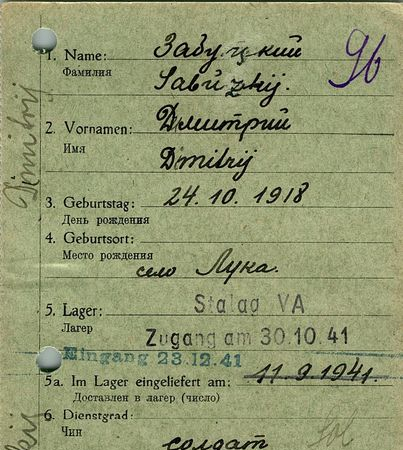 1. Name: Забуцкий
Фамилия
Sabuzkij.
96
2. Vornamen: Дмитрий
Имя
Dmitrij
Dmitrij
3. Geburtstag: 24.10.1918
День рождения
4. Geburtsort:
Место рождения
село Лука.
5. Lager: Stalag VA
Лагер
Zugang am 30.10.41
Eingang 23.12.41
5a. Im Lager eingeliefert am: 11.9.1941.
Доставлен в лагер (число)
6. Dienstgrad:
Чин
солдат
Sol